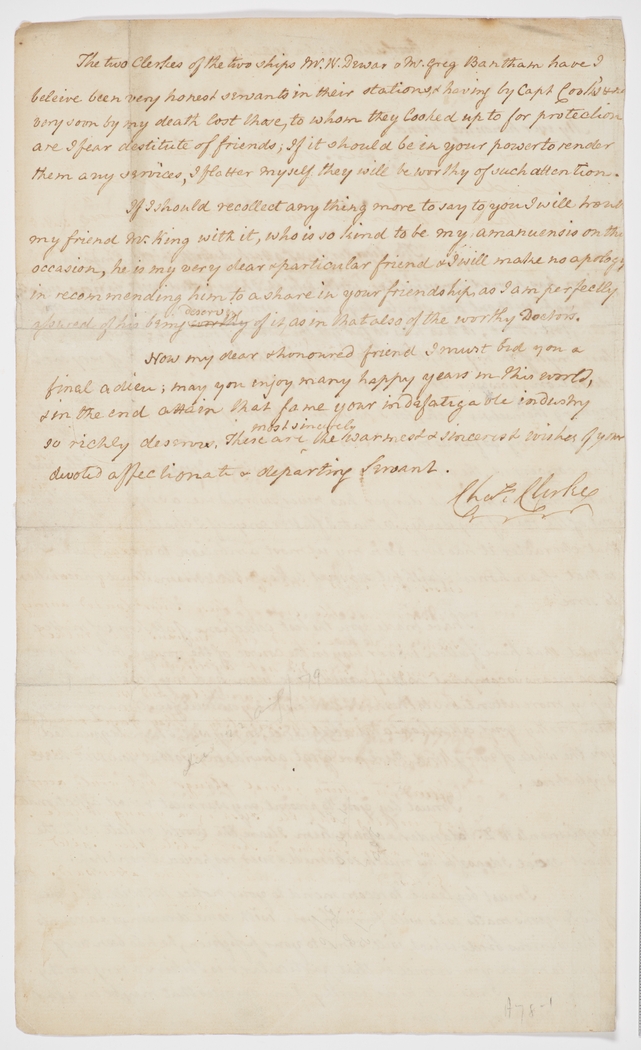 The two Clerkes of the two ships Mr. W. Dewar & Mr. Greg Bantham have I
beleive been very honest servants in their stations, & having by Capt Cook's &
very soon by my death lost those, to whom they looked up to for protection
are I fear destitute of friends; If it should be in your power to render
them any services, I flatter myself they will be worthy of such attention.
If I should recollect any thing more to say to you I will
my friend Mr. King with it, who is so kind to be my amanuensis on the
occasion, he is my very dear & particular friend & I will make no apology
in recommending him to a share in your friendship, as I am perfectly
deserving
assured of his being worthy of it, as in that also of the worthy Doctors.
Now my dear & honoured friend I must bid you a
final adieu; may you enjoy many happy years in this world,
& in the end attain that fame your indefatigable industry
most sincerely
so richly deserves. These are the warmest & sincerest wishes of your
devoted affectionate & departing Servant.
Chas. Clerke
A78-1